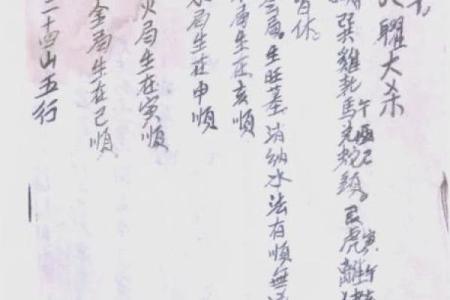 曜大杀
巽雞乾馬兌蛇頭。艮虎離
皆休。
局生旺墓消納水法有順無
局生在亥順
水局生在申順
火局生在寅順
金局生在己順
二十四山五行